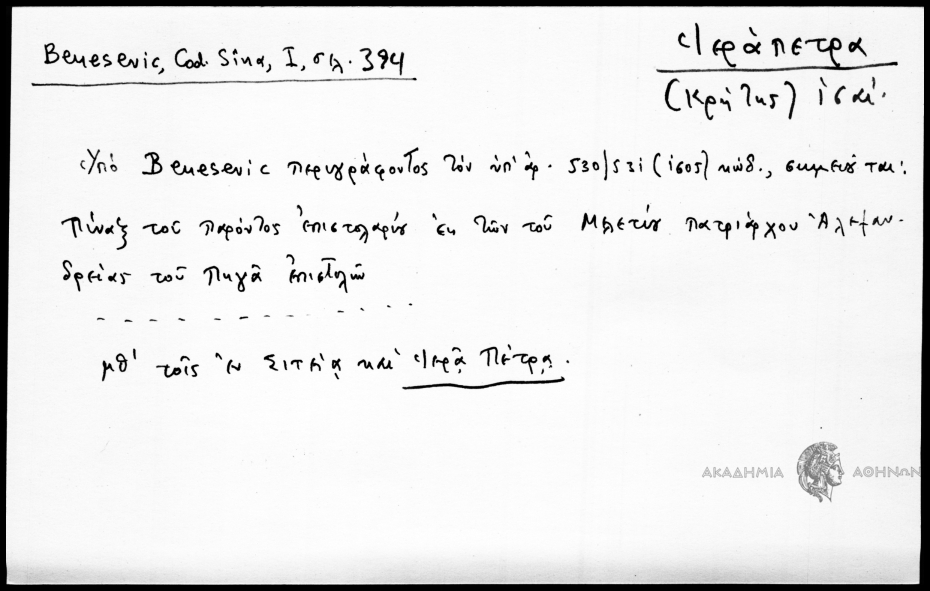 Benesevic, Cod. Sina, I, σελ. 394
Ἱεράπετρα
(Κρήτης) ἰσαι.
Ὑπὸ Benesevic περιγράφοντος τὸν ὑπ' ἀρ. 530/531 (ισος) κώδ., σημειοῦται:
Πίναξ τοῦ παρόντος ἐπιστολαρίου ἐκ τῶν τοῦ Μελετίου πατριάρχου Ἀλεξαν-
δρείας τοῦ Πηγᾶ ἐπιστολῶν
μθ' τοῖς ἐν Σιτείᾳ καὶ Ἱερᾷ Πέτρᾳ.
ΑΚΑΔΗΜΙΑ ΑΘΗΝΩΝ